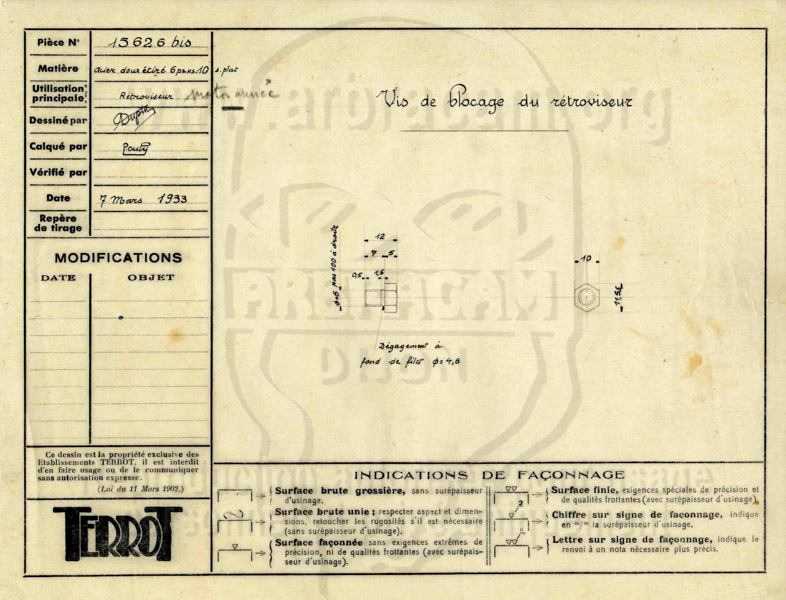 Pièce N° 15626 bis
Matière acier doux étiré 6 pans 10 s. plat
Utilisation principale: Rétroviseur moto année
Dessiné par
Calqué par Pouty
Vérifié par
Date 7 Mars 1933
Repère de tirage
MODIFICATIONS
DATE OBJET
Ce dessin est la propriété exclusive des
Etablissements TERROT, il est interdit
d'en faire usage ou de le communiquer
sans autorisation expresse.
(Loi du 11 Mars 1902.)
TERROT
Vis de blocage du rétroviseur
12
7 5
0,5 1,5
ϕ=6 pas 100 à droite
10
11,55
Dégagement à
fond de filet ϕ=4,6
INDICATIONS DE FAÇONNAGE
Surface brute grossière, sans surépaisseur
d'usinage.
Surface brute unie; respecter aspect et dimen-
sions, retoucher les rugosités s'il est nécessaire
(sans surépaisseur d'usinage).
Surface façonnée sans exigences extrêmes de
précision, ni de qualités frottantes (avec surépais-
seur d'usinage).
Surface finie, exigences spéciales de précision et
de qualités frottantes (avec surépaisseur d'usinage).
2
Chiffre sur signe de faconnage, indique
en m/m la surépaisseur d'usinage.
Lettre sur signe de façonnage, indique le
renvoi à un nota nécessaire plus précis.
www.arbracam.org
ARBRACAM
DIJON